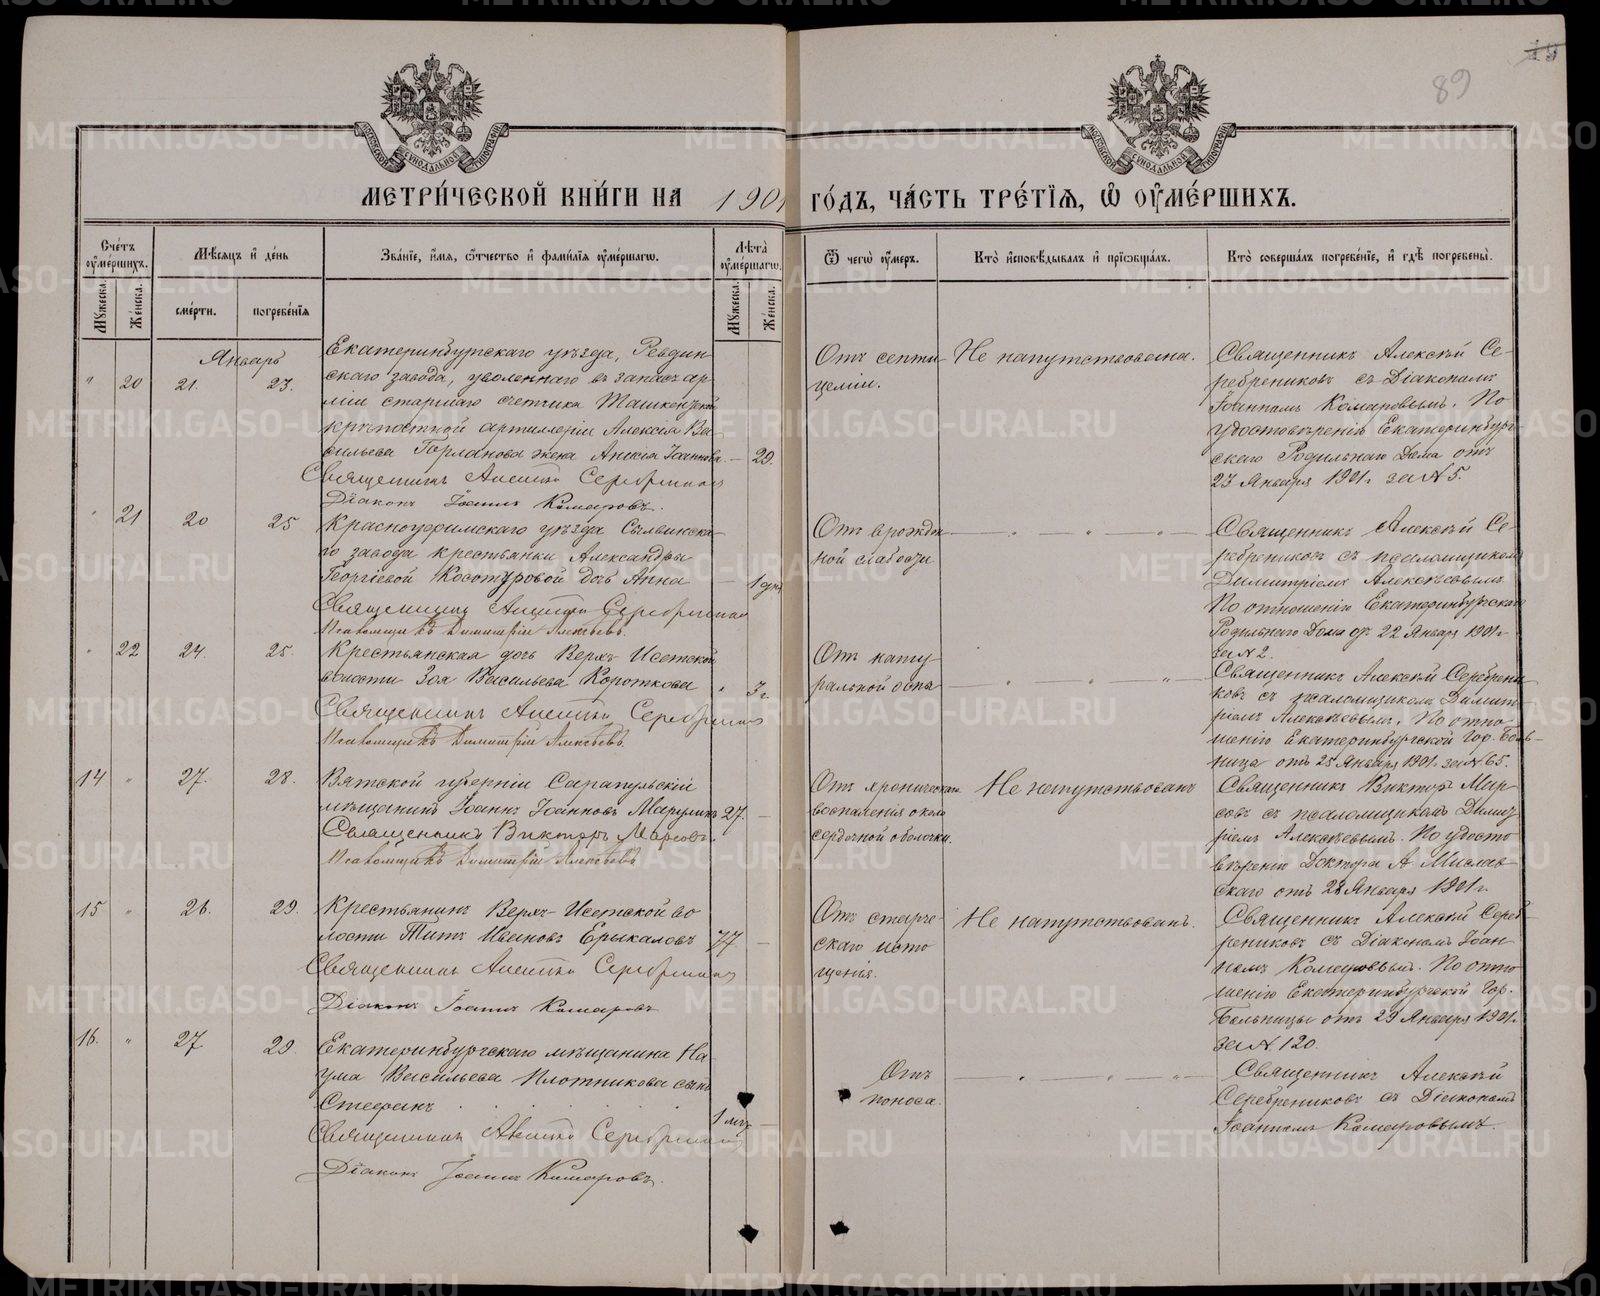 89
МЕТРИ́ЧЕСКОЙ КНИ́ГИ НА 1901 ГО́ДЪ, ЧА́СТЬ ТРЕ́ТІЯ, Ѡ ОУМЕ́РШИХЪ.
Счетъ оумершихъ.
Мужеска.
Женска.
Мѣсяцъ и день
смерти.
погребенія
Званіе, имя, отчество и фамилія оумершаго.
Лѣта оумершаго.
Мужеска.
Женска.
Ѿ чегѡ оумеръ.
Кто исповѣдывалъ и пріобщалъ.
Кто совершалъ погребеніе, и гдѣ погребены.
Январь
" 20 21. 23.
Екатеринбургскаго уѣзда, Ревдин-
скаго завода, уволеннаго въ запасъ ар-
міи старшаго счетчика Ташкентской
крѣпостной артиллеріи Алексѣя Ва-
сильева Горланова жена Анисія Іоаннова. — 29.
Священникъ Алексѣй Серебрениковъ
Діаконъ Іоаннъ Комаровъ.
Отъ септи-
цеміи.
Не напутствована.
Священникъ Алексѣй Се-
ребрениковъ съ Діакономъ
Іоанномъ Комаровымъ. По
удостовѣренію Екатеринбург-
скаго Родильнаго Дома отъ
23 Января 1901 г. за № 5.
" 21 20 25
Красноуфимскаго уѣзда Сылвинска-
го завода крестьянки Александры
Георгіевой Косотуровой дочь Анна — 1 дня
Священникъ Алексѣй Серебрениковъ
Псаломщикъ Димитрій Алексѣевъ.
Отъ врожден-
ной слабости
— " — " — " —
Священникъ Алексѣй Се-
ребрениковъ съ псаломщикомъ
Димитріемъ Алексѣевымъ.
По отношенію Екатеринбургскаго
Родильнаго Дома от 22 Января 1901 г.
за № 2.
" 22 24. 25.
Крестьянская дочь Верхъ-Исетской
волости Зоя Васильева Короткова " 3 г.
Священникъ Алексѣй Серебрениковъ
Псаломщикъ Димитрій Алексѣевъ.
Отъ нату-
ральной оспы
— " — " — " —
Священникъ Алексѣй Серебрени-
ковъ съ псаломщикомъ Димит-
ріемъ Алексѣевымъ. По отно-
шенію Екатеринбургской Гор. Боль-
ницы отъ 25 Января 1901 г. за № 65.
14 " 27. 28.
Вятской губерніи Сарапульскій
мѣщанинъ Іоаннъ Іоанновъ Марулинъ 27. —
Священникъ Викторъ Марсовъ.
Псаломщикъ Димитрій Алексѣевъ
Отъ хроническаго
воспаленія около
сердечной оболочки.
Не напутствованъ
Священникъ Викторъ Мар-
совъ съ псаломщикомъ Димит-
ріемъ Алексѣевымъ. По удосто-
вѣренію Доктора А. Мислав-
скаго отъ 28 Января 1901 г.
15 " 26. 29.
Крестьянинъ Верхъ-Исетской во-
лости Титъ Ивановъ Ерыкаловъ 77 —
Священникъ Алексѣй Серебрениковъ
Діаконъ Іоаннъ Комаровъ
Отъ старче-
скаго исто-
щенія.
Не напутствованъ.
Священникъ Алексѣй Сереб-
рениковъ съ Діакономъ Іоан-
номъ Комаровымъ. По отно-
шенію Екатеринбургской Гор.
Больницы отъ 29 Января 1901 г.
за № 120.
16. " 27. 29.
Екатеринбургскаго мѣщанина На-
ума Васильева Плотникова сынъ
Стефанъ 1 мѣс. —
Священникъ Алексѣй Серебрениковъ
Діаконъ Іоаннъ Комаровъ.
Отъ
поноса.
— " — " — " —
Священникъ Алексѣй
Серебрениковъ съ Діакономъ
Іоанномъ Комаровымъ.
METRIKI.GASO-URAL.RU